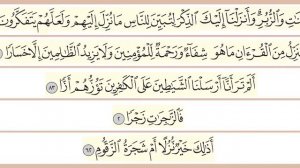 نَتِ وَٱلزُّبُرِ وَأَنزَلْنَآ إِلَيْكَ ٱلذِّكْرَ لِتُبَيِّنَ لِلنَّاسِ مَا نُزِّلَ إِلَيْهِمْ وَلَعَلَّهُمْ يَتَفَكَّرُونَ
نَزِّلُ مِنَ ٱلْقُرْءَانِ مَا هُوَ شِفَآءٌ وَرَحْمَةٌ لِّلْمُؤْمِنِينَ وَلَا يَزِيدُ ٱلظَّٰلِمِينَ إِلَّا خَسَارًا
أَلَمْ تَرَ أَنَّآ أَرْسَلْنَا ٱلشَّيَٰطِينَ عَلَى ٱلْكَٰفِرِينَ تَؤُزُّهُمْ أَزًّا ٨٣
فَٱلزَّٰجِرَٰتِ زَجْرًا ٢
أَذَٰلِكَ خَيْرٌ نُّزُلًا أَمْ شَجَرَةُ ٱلزَّقُّومِ ٦٢